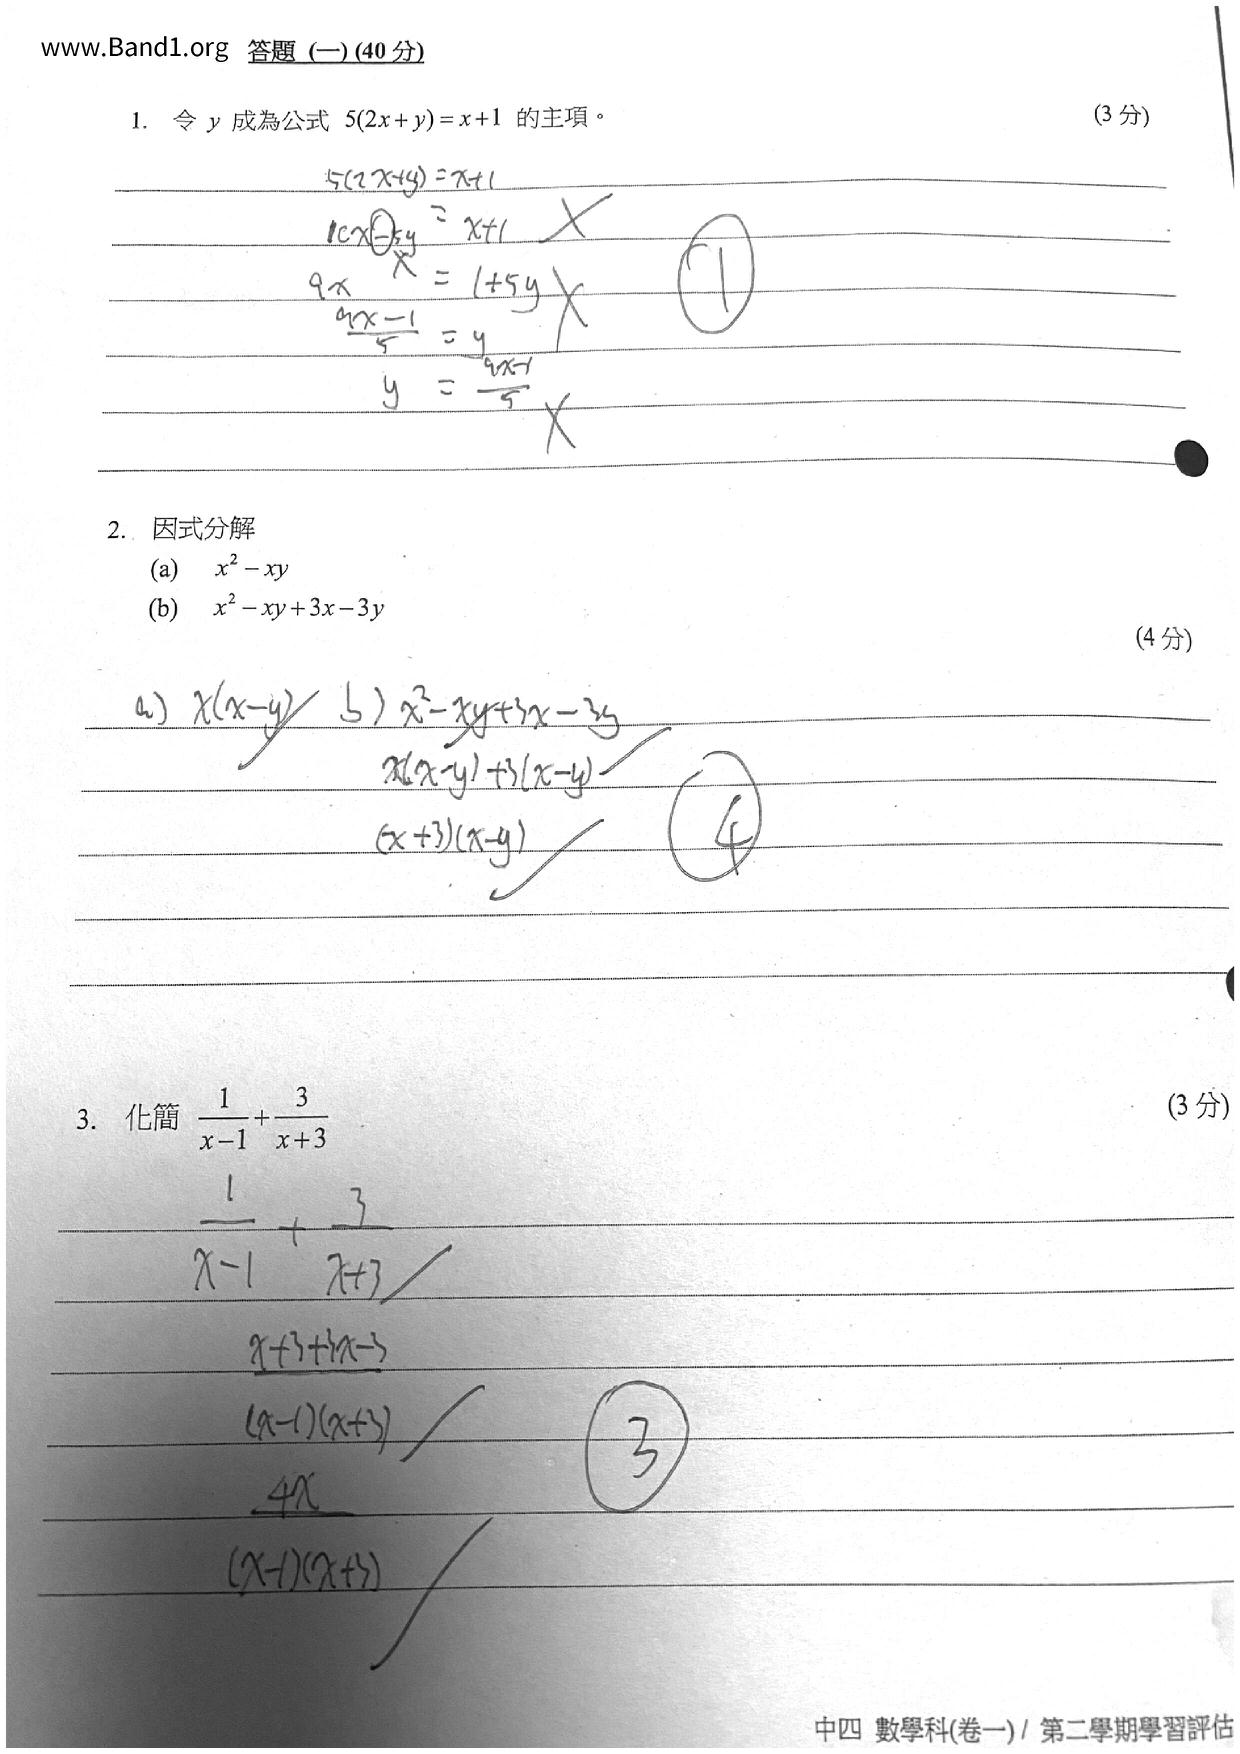 www.Band1.org 答題 (一) (40 分)
1. 令 y 成為公式 5(2x+y)=x+1 的主項。 (3 分)
5(2x+y) = x+1
10x-5y = x+1 X
9x = 1+5y X
9x-1/5 = y
y = 9x-1/5 X
1
2. 因式分解
(a) x²-xy
(b) x²-xy+3x-3y
(4 分)
a) x(x-y) b) x²-xy+3x-3y
x(x-y)+3(x-y)
(x+3)(x-y)
4
3. 化簡 1/x-1 + 3/x+3 (3 分)
1/x-1 + 3/x+3
x+3+3x-3
(x-1)(x+3)
3
4x
(x-1)(x+3)
中四 數學科(卷一) / 第二學期學習評估